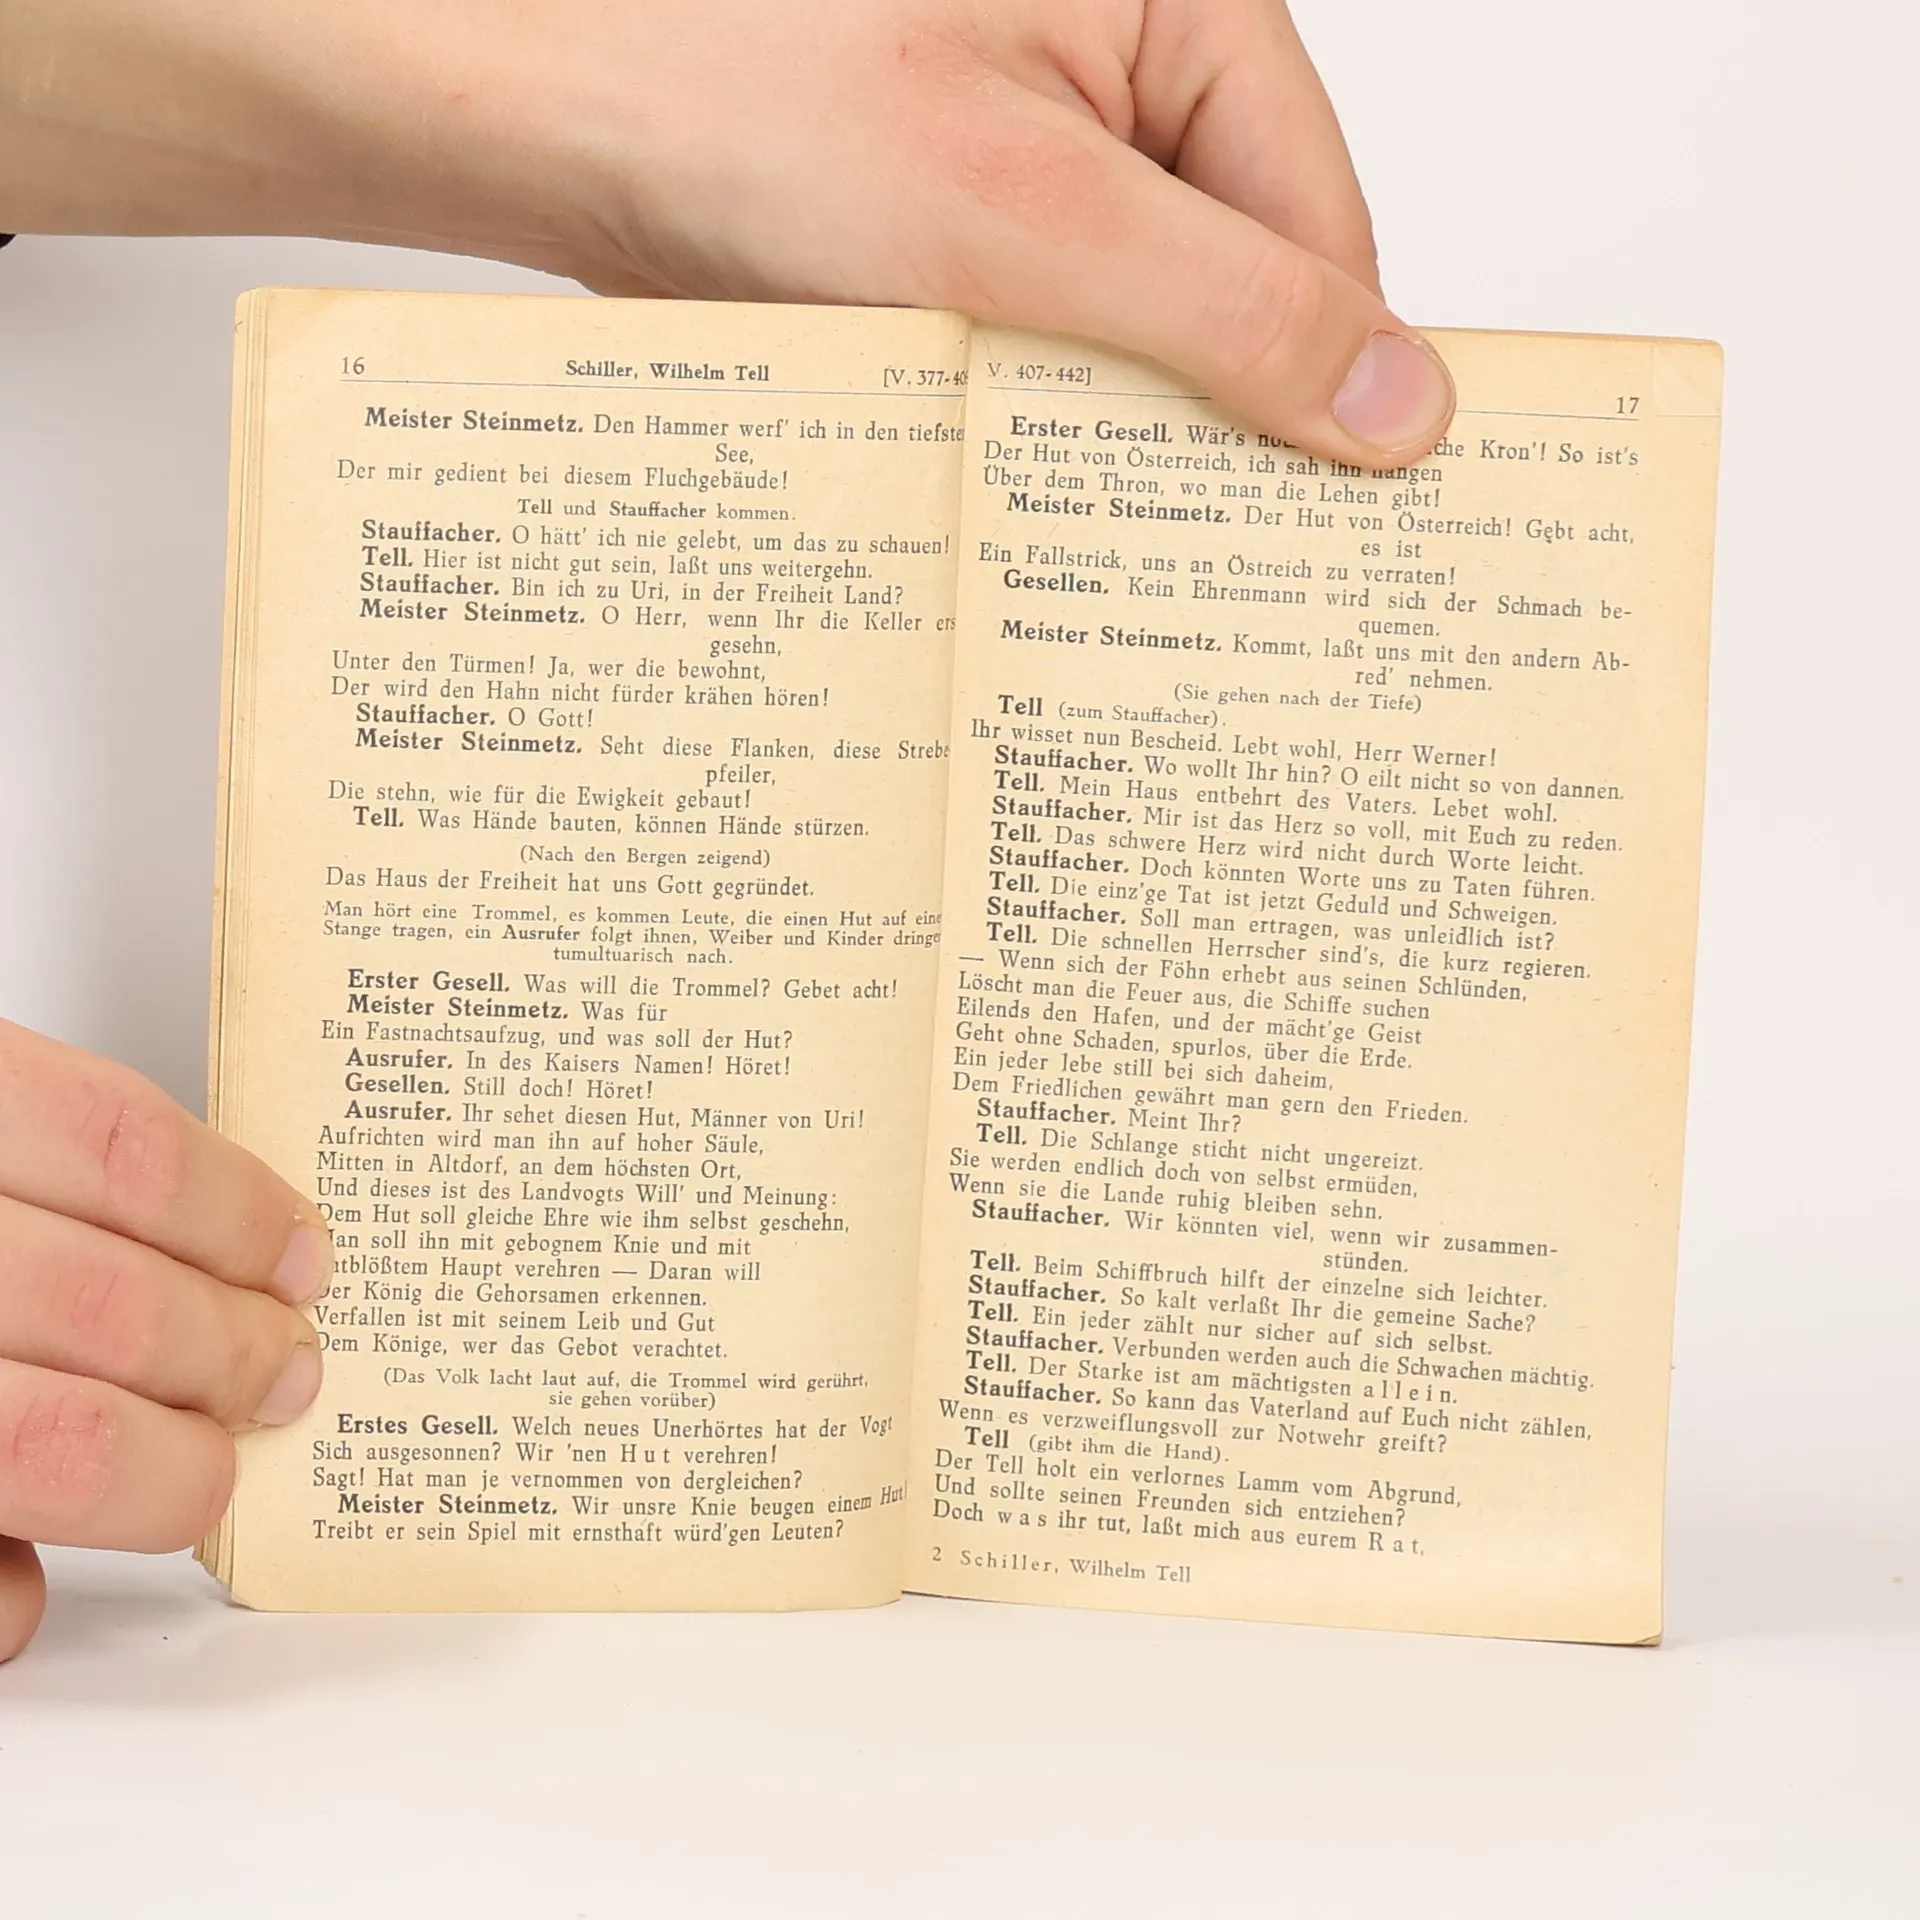 16 Schiller, Wilhelm Tell [V. 377-40
Meister Steinmetz. Den Hammer werf' ich in den tiefste
See,
Der mir gedient bei diesem Fluchgebäude!
Tell und Stauffacher kommen.
Stauffacher. O hätt' ich nie gelebt, um das zu schauen!
Tell. Hier ist nicht gut sein, laßt uns weitergehn.
Stauffacher. Bin ich zu Uri, in der Freiheit Land?
Meister Steinmetz. O Herr, wenn Ihr die Keller ers
gesehn,
Unter den Türmen! Ja, wer die bewohnt,
Der wird den Hahn nicht fürder krähen hören!
Stauffacher. O Gott!
Meister Steinmetz. Seht diese Flanken, diese Strebe
pfeiler,
Die stehn, wie für die Ewigkeit gebaut!
Tell. Was Hände bauten, können Hände stürzen.
(Nach den Bergen zeigend)
Das Haus der Freiheit hat uns Gott gegründet.
Man hört eine Trommel, es kommen Leute, die einen Hut auf eine
Stange tragen, ein Ausrufer folgt ihnen, Weiber und Kinder dringe
tumultuarisch nach.
Erster Gesell. Was will die Trommel? Gebet acht!
Meister Steinmetz. Was für
Ein Fastnachtsaufzug, und was soll der Hut?
Ausrufer. In des Kaisers Namen! Höret!
Gesellen. Still doch! Höret!
Ausrufer. Ihr sehet diesen Hut, Männer von Uri!
Aufrichten wird man ihn auf hoher Säule,
Mitten in Altdorf, an dem höchsten Ort,
Und dieses ist des Landvogts Will' und Meinung:
Dem Hut soll gleiche Ehre wie ihm selbst geschehn,
Man soll ihn mit gebognem Knie und mit
ntblößtem Haupt verehren — Daran will
Der König die Gehorsamen erkennen.
Verfallen ist mit seinem Leib und Gut
Dem Könige, wer das Gebot verachtet.
(Das Volk lacht laut auf, die Trommel wird gerührt,
sie gehen vorüber)
Erstes Gesell. Welch neues Unerhörtes hat der Vogt
Sich ausgesonnen? Wir 'nen Hut verehren!
Sagt! Hat man je vernommen von dergleichen?
Meister Steinmetz. Wir unsre Knie beugen einem Hut!
Treibt er sein Spiel mit ernsthaft würd'gen Leuten?
V. 407-442] 17
Erster Gesell. Wär's che Kron'! So ist's
Der Hut von Österreich, ich sah ihn hangen
Über dem Thron, wo man die Lehen gibt!
Meister Steinmetz. Der Hut von Österreich! Gebt acht,
es ist
Ein Fallstrick, uns an Östreich zu verraten!
Gesellen. Kein Ehrenmann wird sich der Schmach be-
quemen.
Meister Steinmetz. Kommt, laßt uns mit den andern Ab-
red' nehmen.
(Sie gehen nach der Tiefe)
Tell (zum Stauffacher).
Ihr wisset nun Bescheid. Lebt wohl, Herr Werner!
Stauffacher. Wo wollt Ihr hin? O eilt nicht so von dannen.
Tell. Mein Haus entbehrt des Vaters. Lebet wohl.
Stauffacher. Mir ist das Herz so voll, mit Euch zu reden.
Tell. Das schwere Herz wird nicht durch Worte leicht.
Stauffacher. Doch könnten Worte uns zu Taten führen.
Tell. Die einz'ge Tat ist jetzt Geduld und Schweigen.
Stauffacher. Soll man ertragen, was unleidlich ist?
Tell. Die schnellen Herrscher sind's, die kurz regieren.
— Wenn sich der Föhn erhebt aus seinen Schlünden,
Löscht man die Feuer aus, die Schiffe suchen
Eilends den Hafen, und der mächt'ge Geist
Geht ohne Schaden, spurlos, über die Erde.
Ein jeder lebe still bei sich daheim,
Dem Friedlichen gewährt man gern den Frieden.
Stauffacher. Meint Ihr?
Tell. Die Schlange sticht nicht ungereizt.
Sie werden endlich doch von selbst ermüden,
Wenn sie die Lande ruhig bleiben sehn.
Stauffacher. Wir könnten viel, wenn wir zusammen-
stünden.
Tell. Beim Schiffbruch hilft der einzelne sich leichter.
Stauffacher. So kalt verlaßt Ihr die gemeine Sache?
Tell. Ein jeder zählt nur sicher auf sich selbst.
Stauffacher. Verbunden werden auch die Schwachen mächtig.
Tell. Der Starke ist am mächtigsten allein.
Stauffacher. So kann das Vaterland auf Euch nicht zählen,
Wenn es verzweiflungsvoll zur Notwehr greift?
Tell (gibt ihm die Hand).
Der Tell holt ein verlornes Lamm vom Abgrund,
Und sollte seinen Freunden sich entziehen?
Doch was ihr tut, laßt mich aus eurem Rat,
2 Schiller, Wilhelm Tell